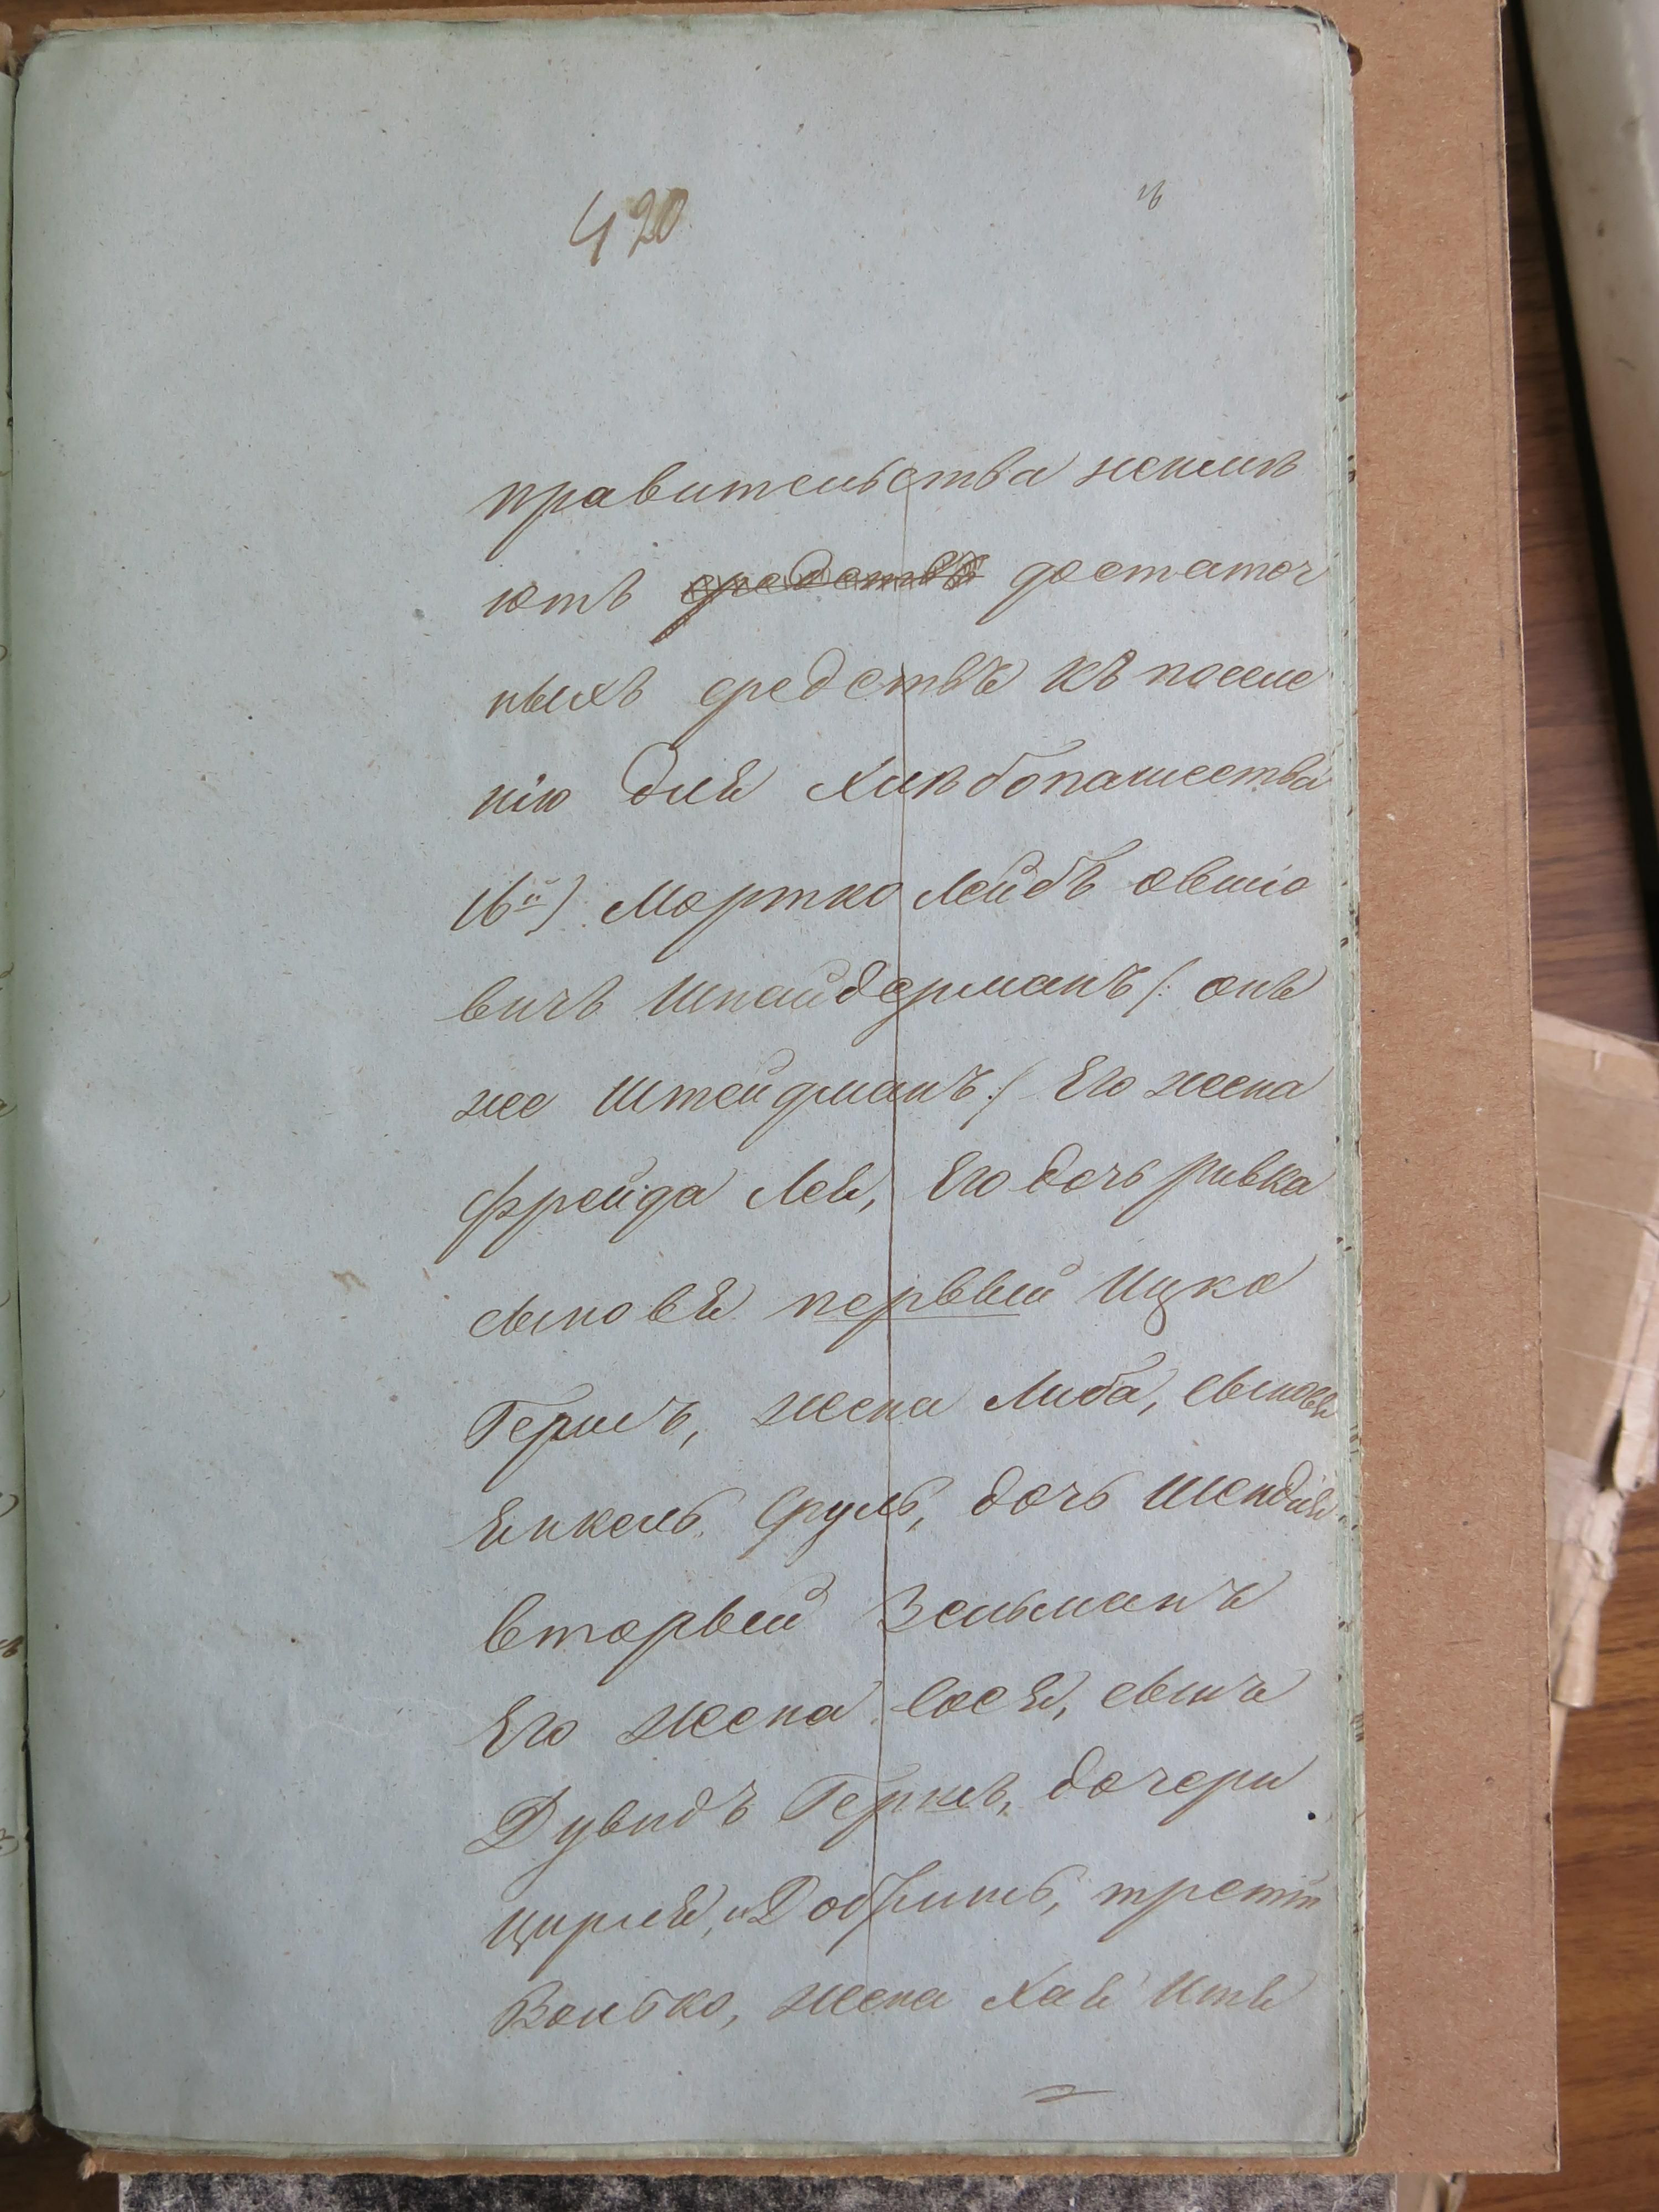 420
16
правительства неимѣ
ютъ средствъ достаточ
ныхъ средствъ къ поселе
нію для хлѣбопашества
16й) Мортко Лейбъ Овшіо
вичъ Шнайдерманъ /: онъ
же Штейдманъ :/ Его жена
Фрейда Лея, Его дочь Ривка
сыновья первый Ицко
Гершъ, жена Либа, сыновья
Янкель Сруль, дочь Шендля
вторый Зельманъ
Его жена Сося, сынъ
Дувидъ Гершъ, дочери
Цирля, и Добришъ, третій
Волько, жена Хая Итя